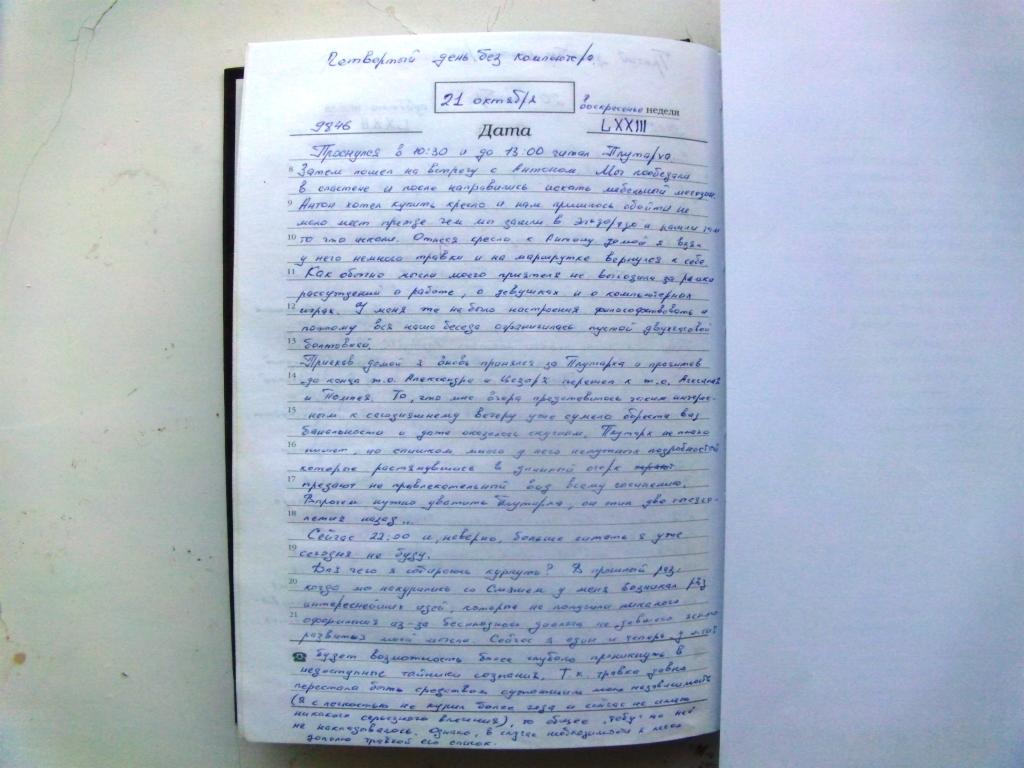 Четвертый день без компьютера
21 октября
Воскресенье недели
9846 Дата LXXIII
Проснулся в 10:30 и до 13:00 читал Плутарха.
8 Затем пошел на встречу с Антоном. Мы пообедали
в сластене и после направились искать мебельный магазин.
9 Антон хотел купить кресло и нам пришлось обойти не
мало мест прежде чем мы зашли в и нашли там
10 то что искали. Отнеся кресло к Антону домой я взял
у него немного травки и на маршрутке вернулся к себе.
11 Как обычно мысли моего приятеля не выходили за рамки
рассуждений о работе, о девушках и о компьютерных
12 играх. У меня же не было настроения философствовать и
поэтому вся наша беседа ограничилась пустой двухчасовой
13 болтовней.
Приехав домой я вновь принялся за Плутарха и прочитав
14 до конца ж.о. Александра и Цезаря перешел к ж.о. Агесилая
и Помпея. То, что мне вчера представилось таким интерес-
15 ным к сегодняшнему вечеру уже сумело обрести вид
банальности и даже оказалось скучным. Плутарх не плохо
16 пишет, но слишком много у него ненужных подробностей
которые растянувшись в длинный очерк
17 предают не привлекательный вид всему сочинению.
Впрочем нужно уважить Плутарха, он жил два тысяче-
18 летия назад...
Сейчас 22:00 и, наверно, больше читать я уже
19 сегодня не буду.
Для чего я собираюсь курнуть? В прошлый раз,
20 когда мы накурились со у меня возникал ряд
интереснейших идей, которые не получили никакого
21 оформления из-за беспокойного диалога не дававшего
развиться моей мысли. Сейчас я один и теперь у меня
будет возможность более глубоко проникнуть в
недоступные тайники сознания. Т.к. травка давно
перестала быть средством
(я с легкостью не курил более года и сейчас не имею
никакого серьезного влечения), то общее "табу" на неё
не накладывалось. Однако, в случае необходимости я
дополню травкой его список.